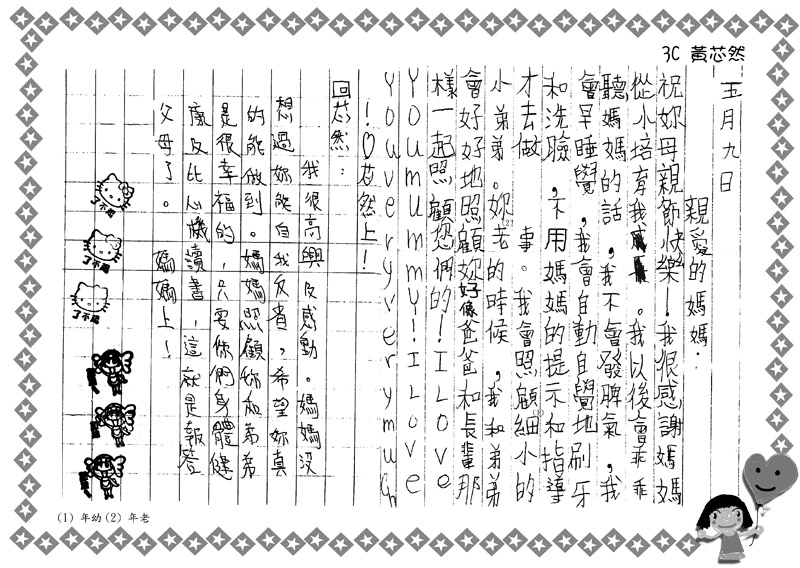 3C 黃芯然
五月九日
親愛的媽媽:
祝妳母親節快樂!我很感謝媽媽
從小培育我成長。我以後會乖乖
聽媽媽的話,我不會發脾氣,我
會早睡覺,我會自動自覺地刷牙
和洗臉,不用媽媽的提示和指導
才去做事。我會照顧細小的
小弟弟。妳老(2)的時候,我和弟弟
會好好地照顧妳好像爸爸和長輩那
樣一起照顧您們的!I Love
YOU mummy! I Love
You very very much
!♡芯然上!
回芯然:
我很高興及感動。媽媽沒
想過妳能自我反省,希望妳真
的能做到。媽媽照顧妳和弟弟
是很幸福的,只要你們身體健
康及比心機讀書,這就是報答
父母了。媽媽上!
了不起
了不起
了不起
(1) 年幼(2) 年老